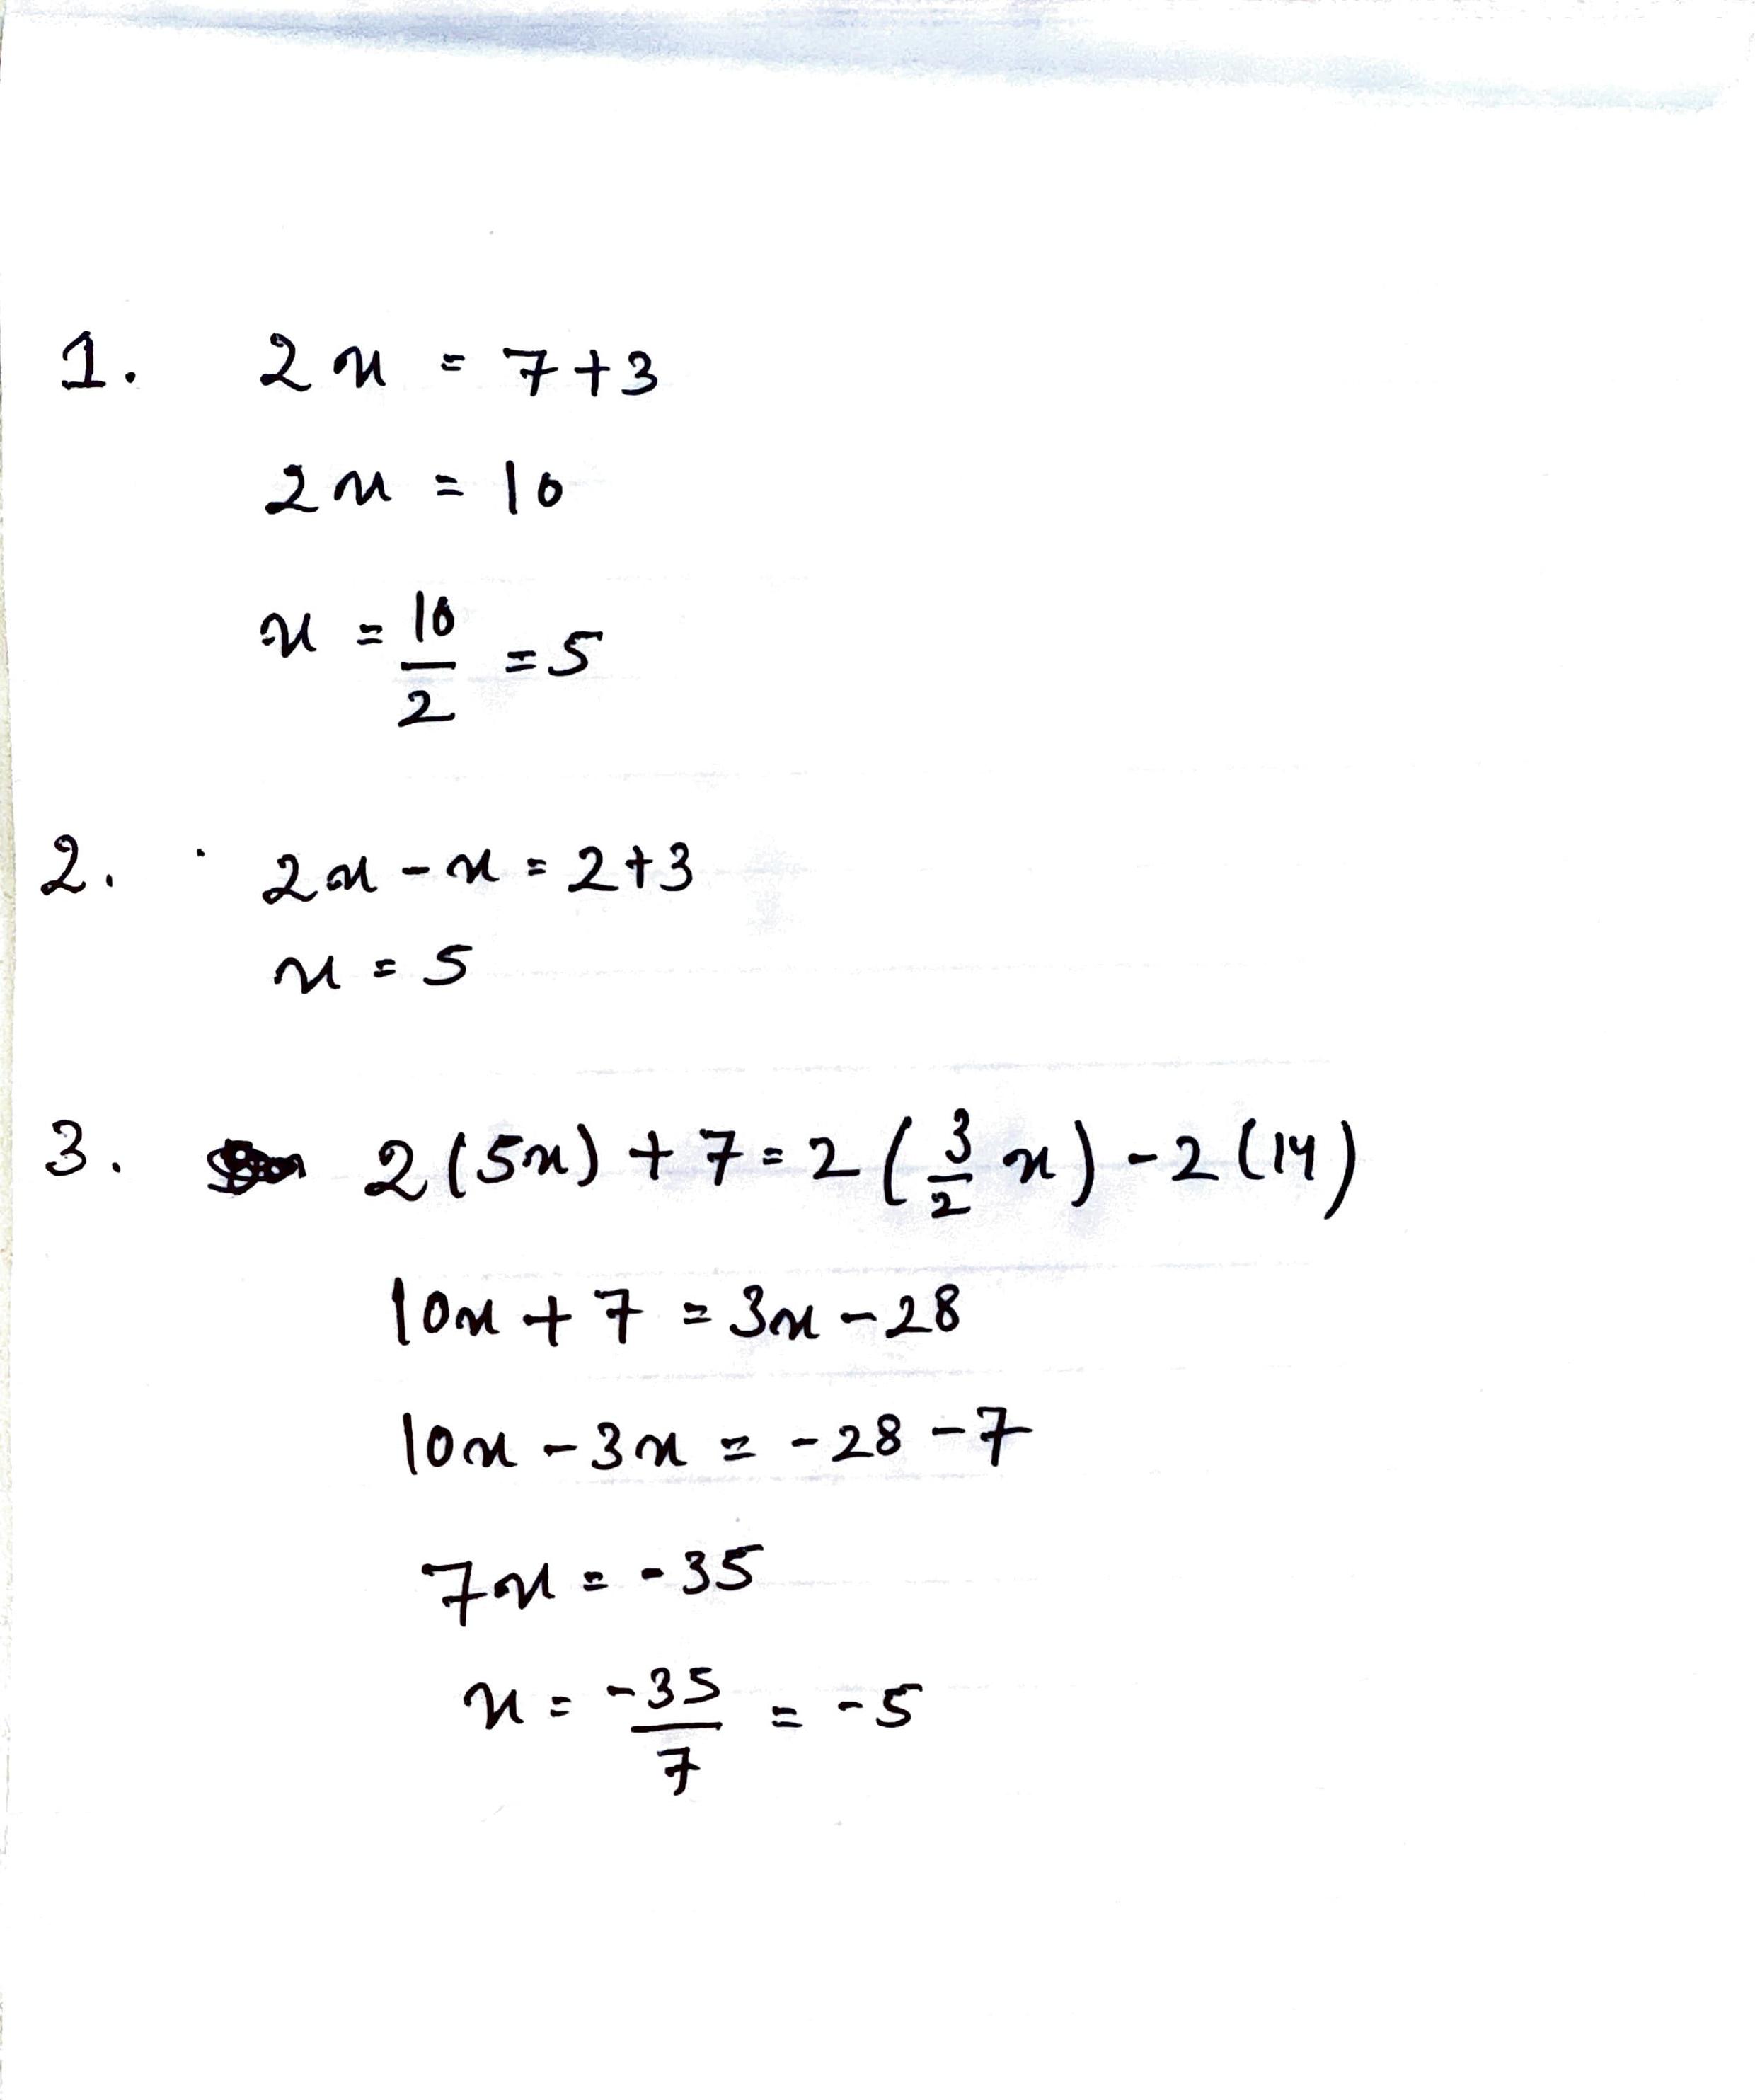 1. 2x = 7+3
2x = 10
x = 10/2 = 5
2. 2x - x = 2+3
x = 5
3. 2(5x) + 7 = 2(3/2 x) - 2(14)
10x + 7 = 3x - 28
10x - 3x = -28 - 7
7x = -35
x = -35/7 = -5